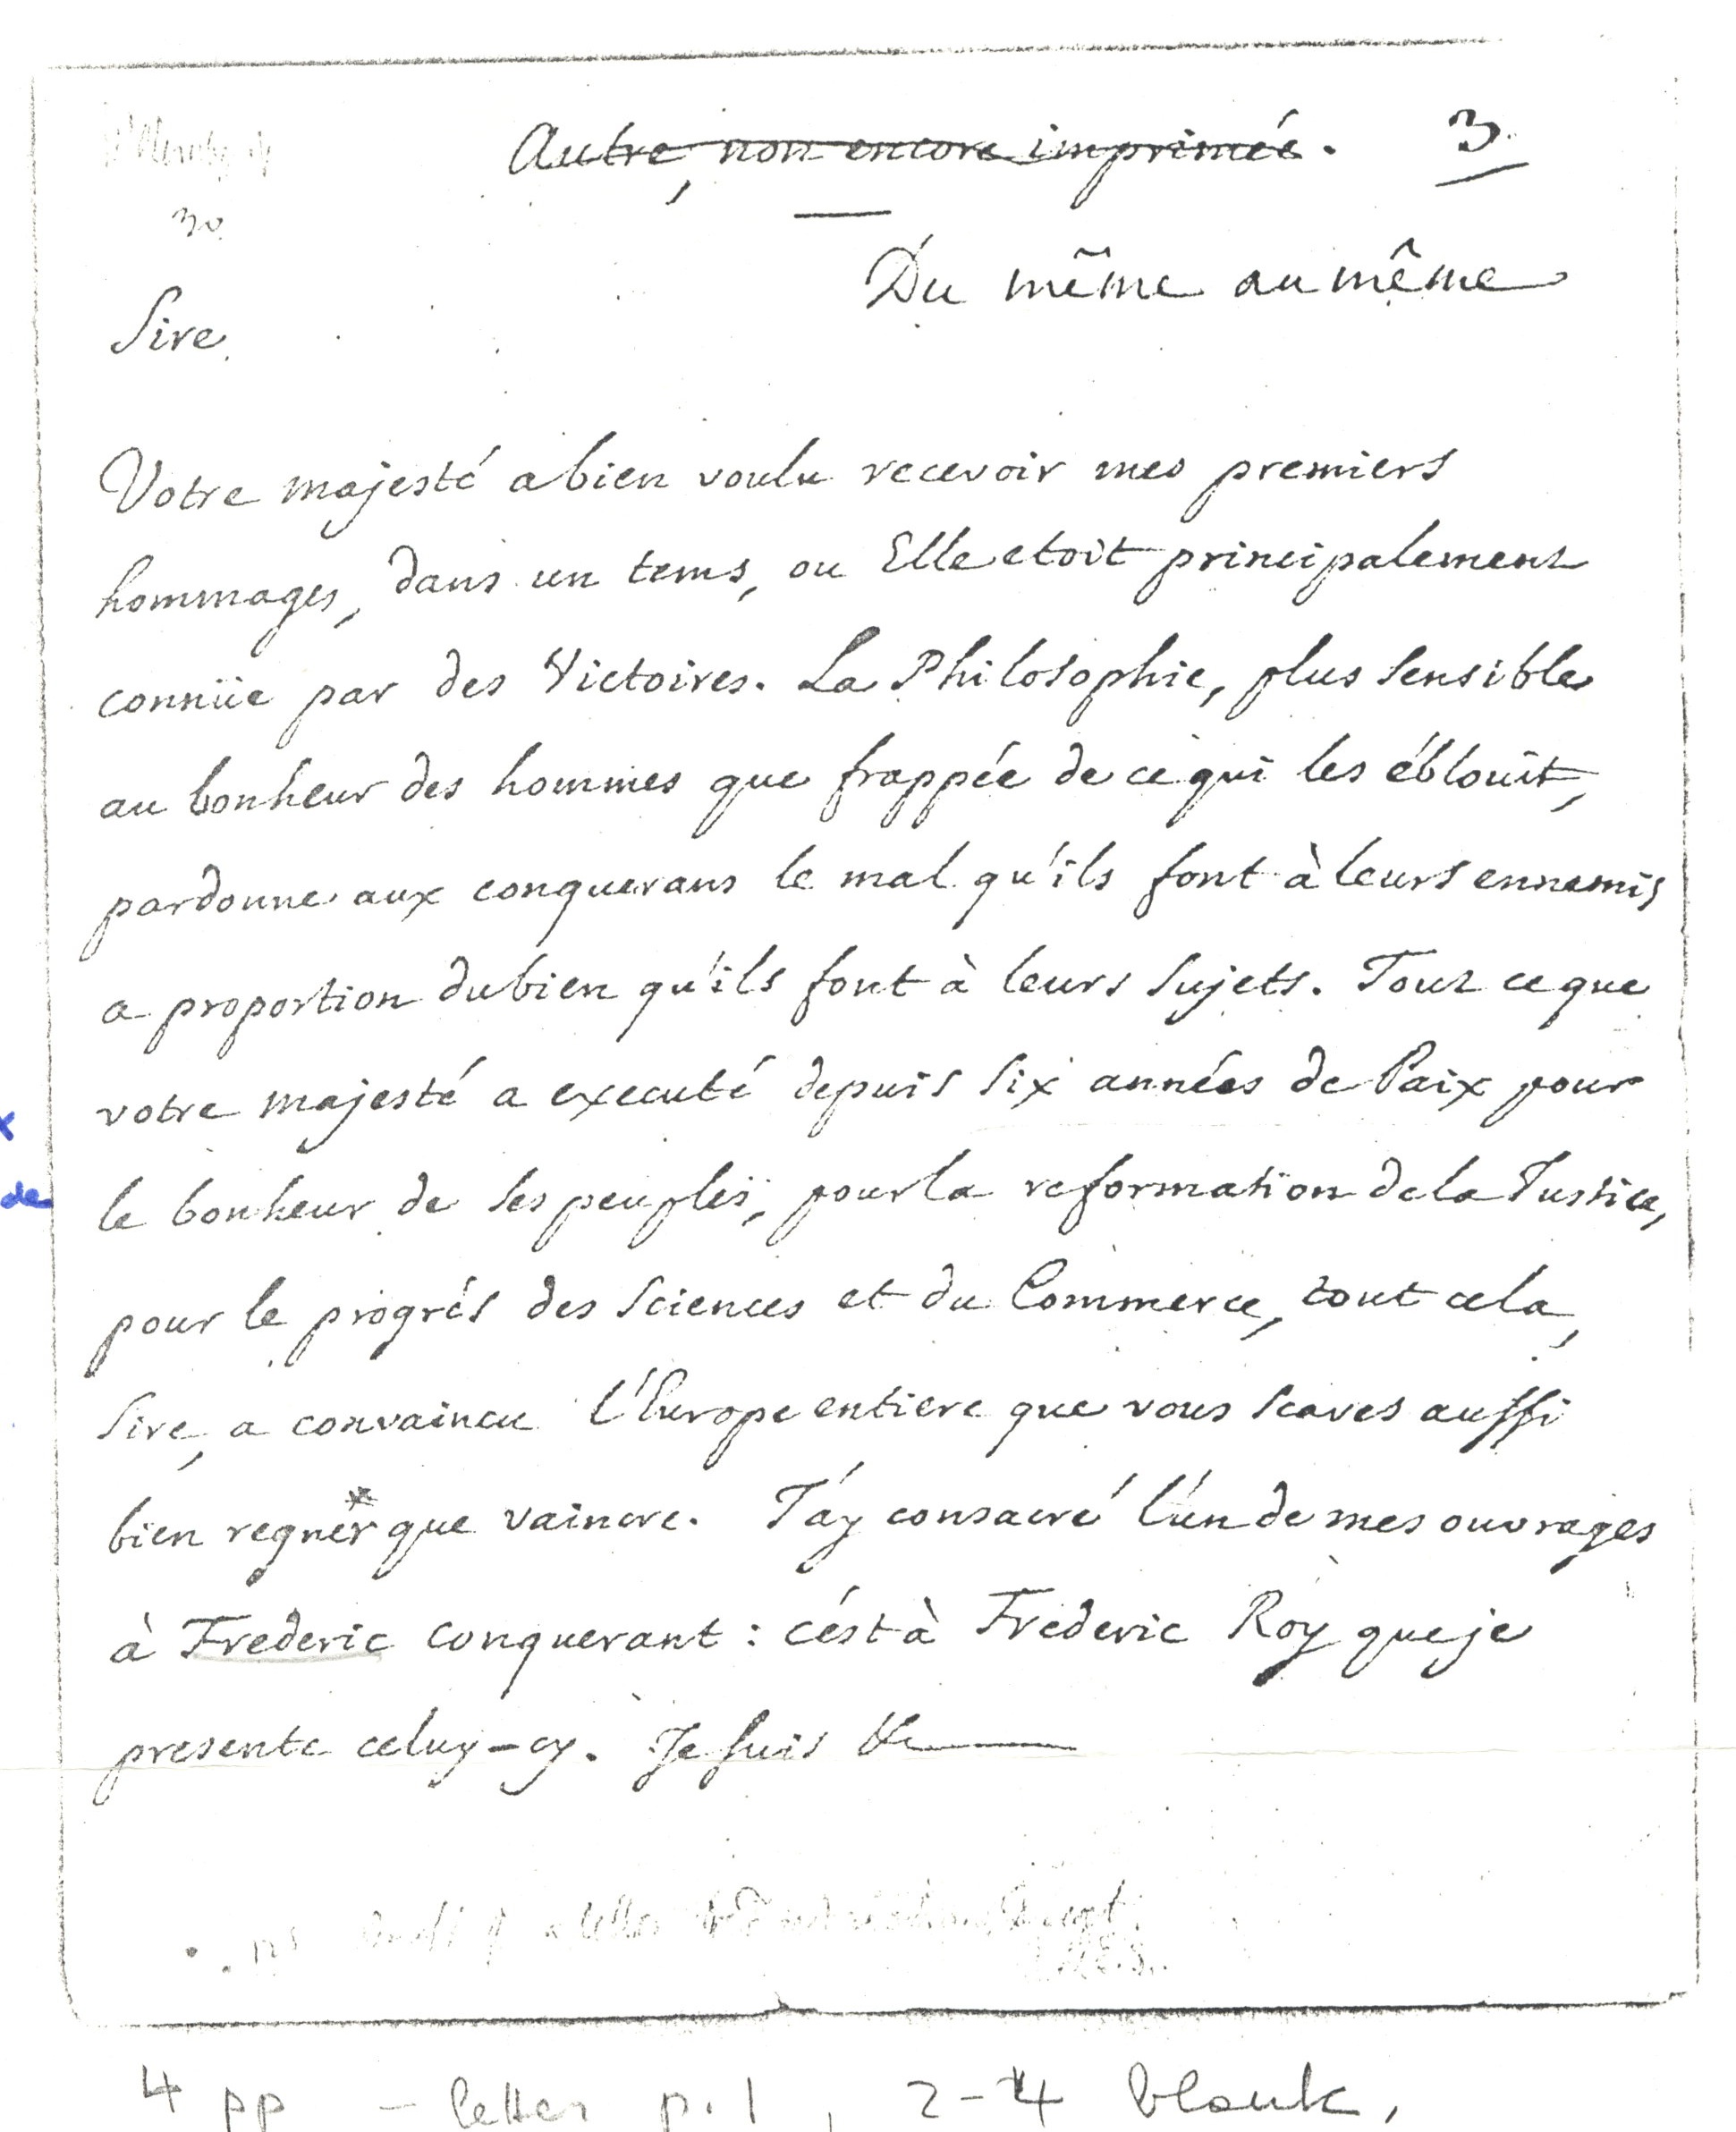 Autre, non encore imprimée. 3.
30
Du même au même
Sire,
Votre majesté a bien voulu recevoir mes premiers
hommages, dans un tems, ou Elle etoit principalement
connüe par des Victoires. La Philosophie, plus sensible
au bonheur des hommes que frappée de ce qui les éblouit,
pardonne aux conquerans le mal qu'ils font à leurs ennemis
a proportion du bien qu'ils font à leurs sujets. Tout ce que
votre majesté a executé depuis six années de Paix pour
x
le bonheur de ses peuples, pour la reformation de la Justice,
de
pour le progrés des Sciences et du Commerce, tout cela,
Sire, a convaincu l'Europe entiere que vous scaves aussi
bien regner* que vaincre. J'áy consacré l'un de mes ouvrages
à Frederic conquerant : c'ést à Frederic Roy que je
presente celuy-cy. Je suis &c
4 pp - letter p. 1, 2-4 blank,